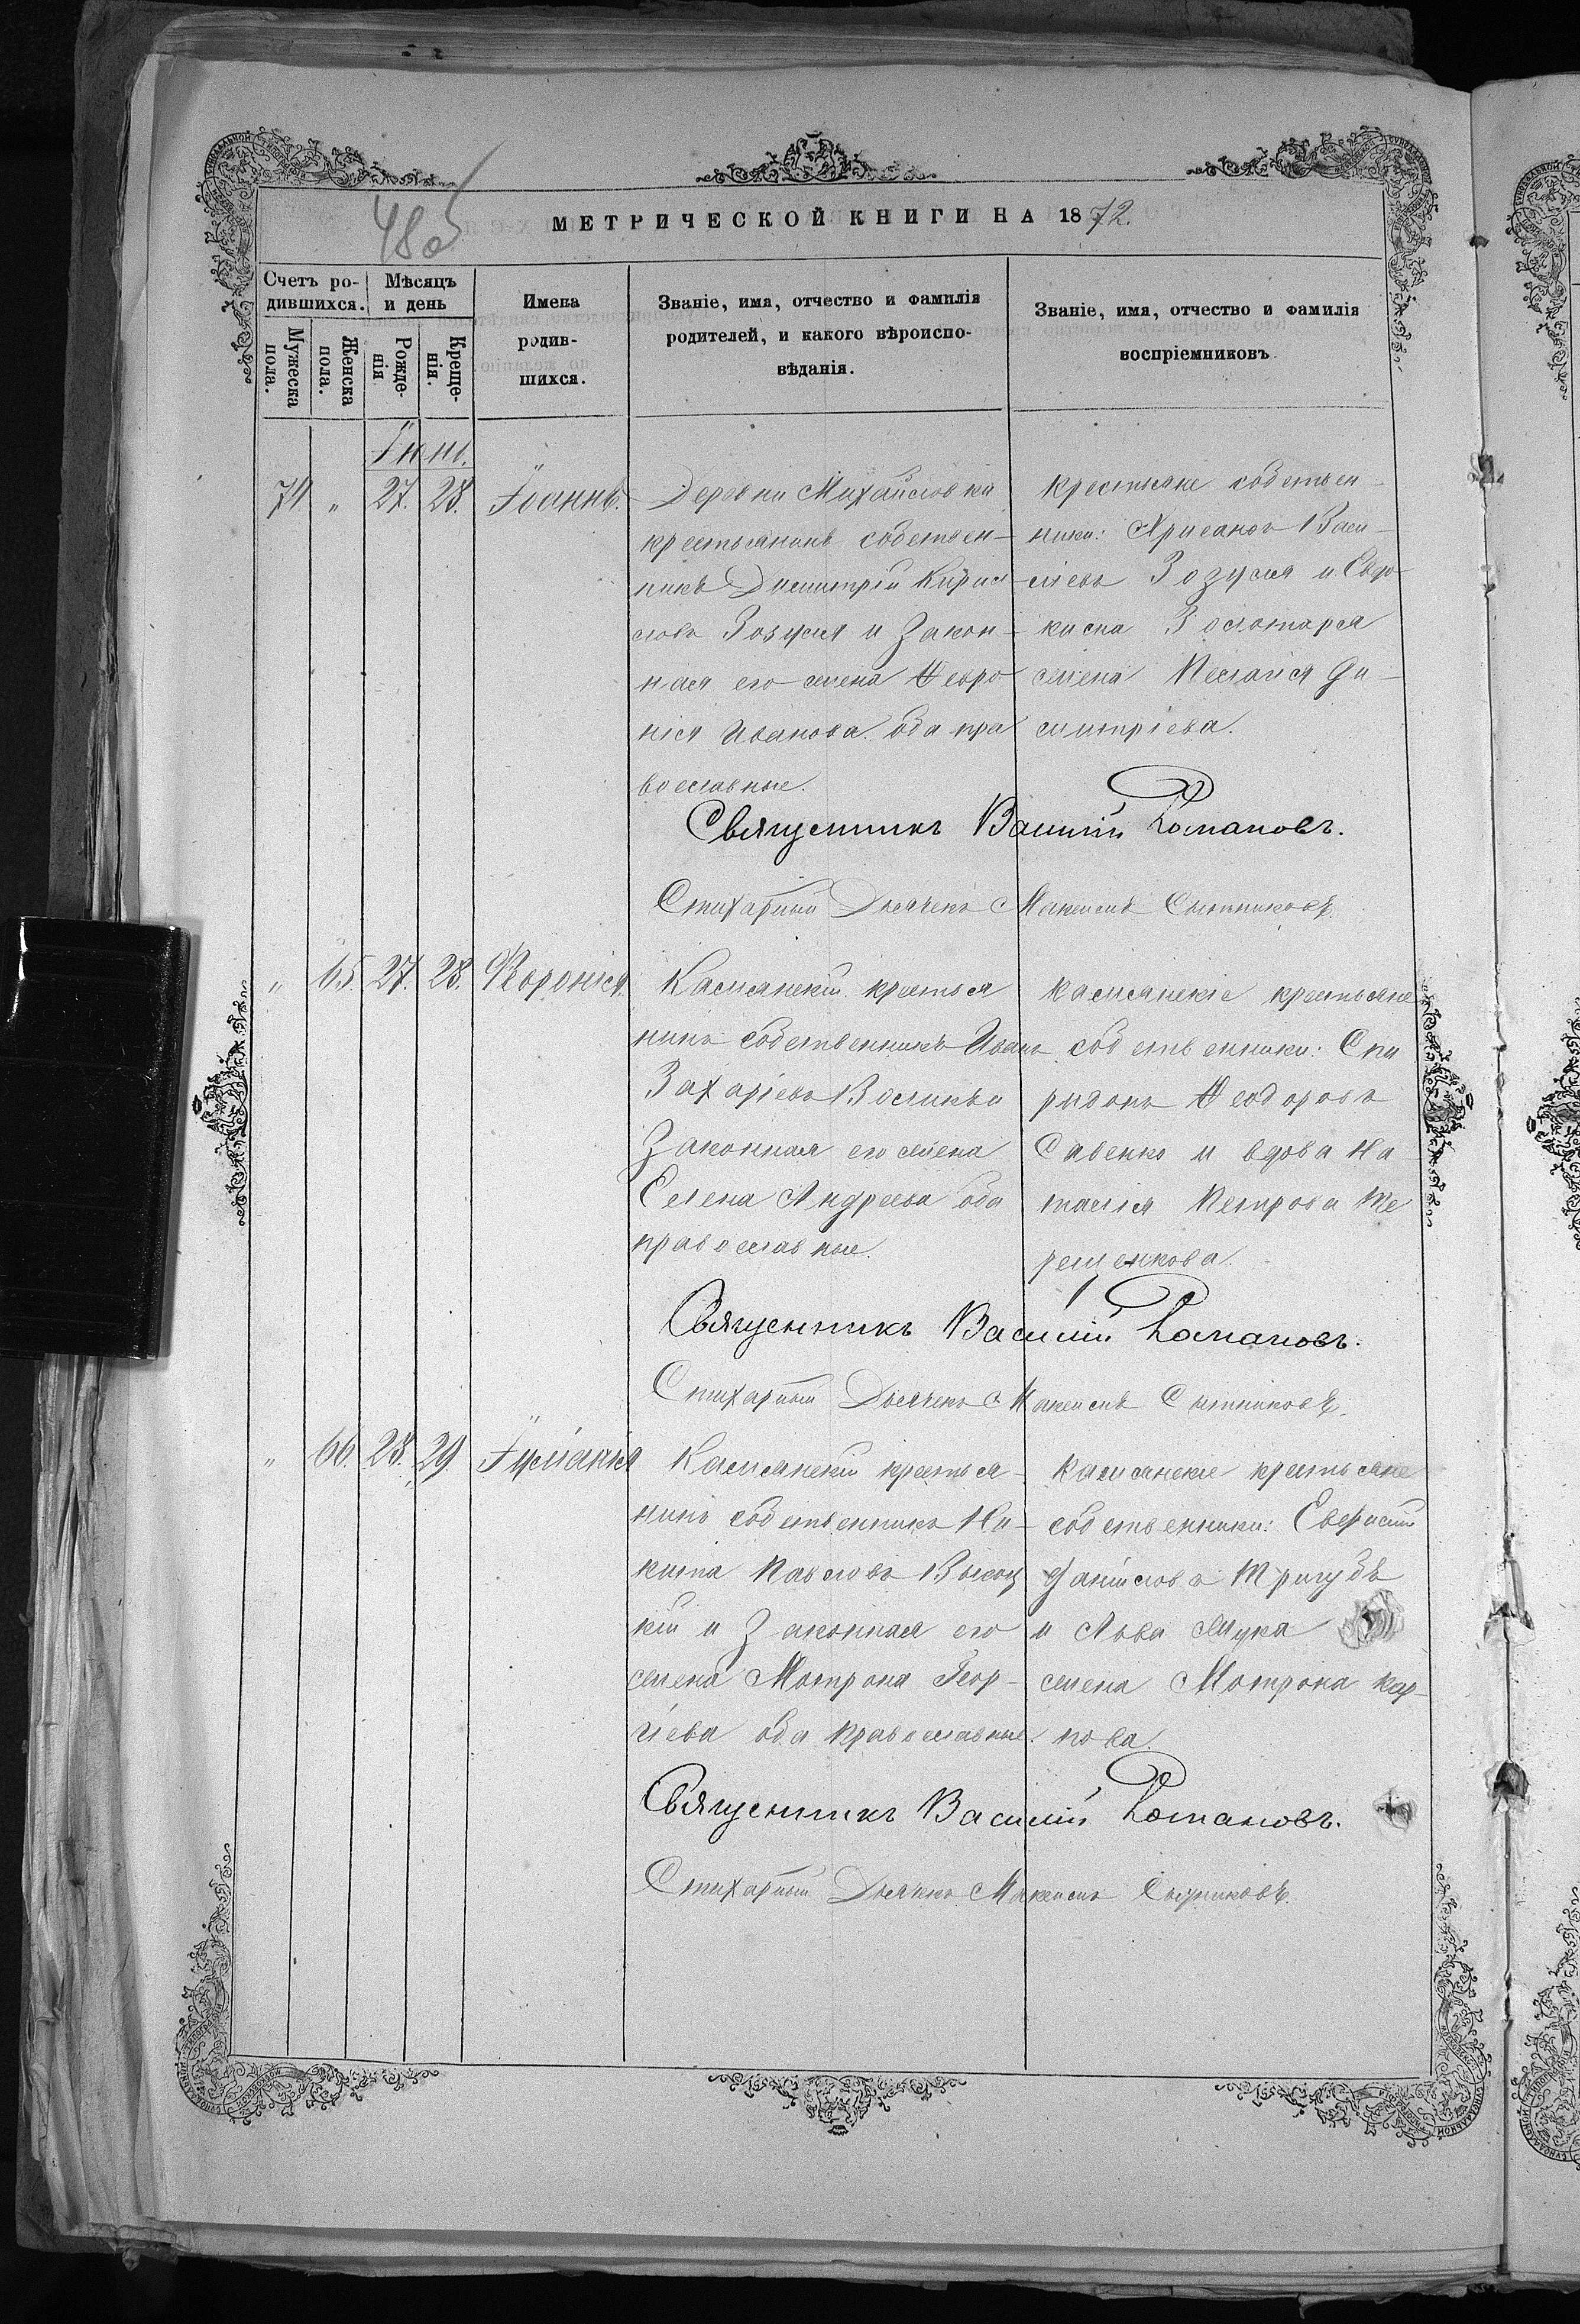 МЕТРИЧЕСКОЙ КНИГИ НА 1872.
Счетъ ро-
дившихся.
Мужеска
пола.
Женска
пола.
Мѣсяцъ
и день
Рожде-
нія
Креще-
нія.
Имена
родив-
шихся.
Званіе, имя, отчество и фамилія
родителей, и какого вѣроиспо-
вѣданія.
Званіе, имя, отчество и фамилія
воспріемниковъ.
74. " 27. 28. Іоаннъ.
Деревни Михайловки
крестьянинъ собствен-
никъ Димитрій Кирил-
ловъ Зозуля и закон-
ная его жена Февро
нія Иванова. оба пра
вославные.
крестьяне собствен-
ники: Хрисанѳъ Васи-
ліевъ Зозуля и Евдо-
кима Золотаря
жена Пелагія Ди-
митріева.
Священникъ Василій Романовъ.
Стихарный Дьячекъ Максимъ Сытниковъ.
" 65. 27. 28. Февронія.
крестья
нинъ собственникъ Иванъ
Захаріевъ
Законная его жена
Елена Андреева оба
православные.
крестьяне
собственники: Спи
ридонъ Ѳеодоровъ
Савенко и вдова На
талія Петрова Те
рещенкова.
Священникъ Василій Романовъ.
Стихарный Дьячекъ Максимъ Сытниковъ.
" 66. 28. 29 Іуліанія
крестья-
нинъ собственникъ Ни-
кита Павловъ Высоц
кій и Законная его
жена Мотрона Геор-
гіева оба православные.
крестьяне
собственники:
Даніиловъ Тригубъ
и Льва
жена Мотрона Кар-
пова.
Священникъ Василій Романовъ.
Стихарный Дьячекъ Максимъ Сытниковъ.